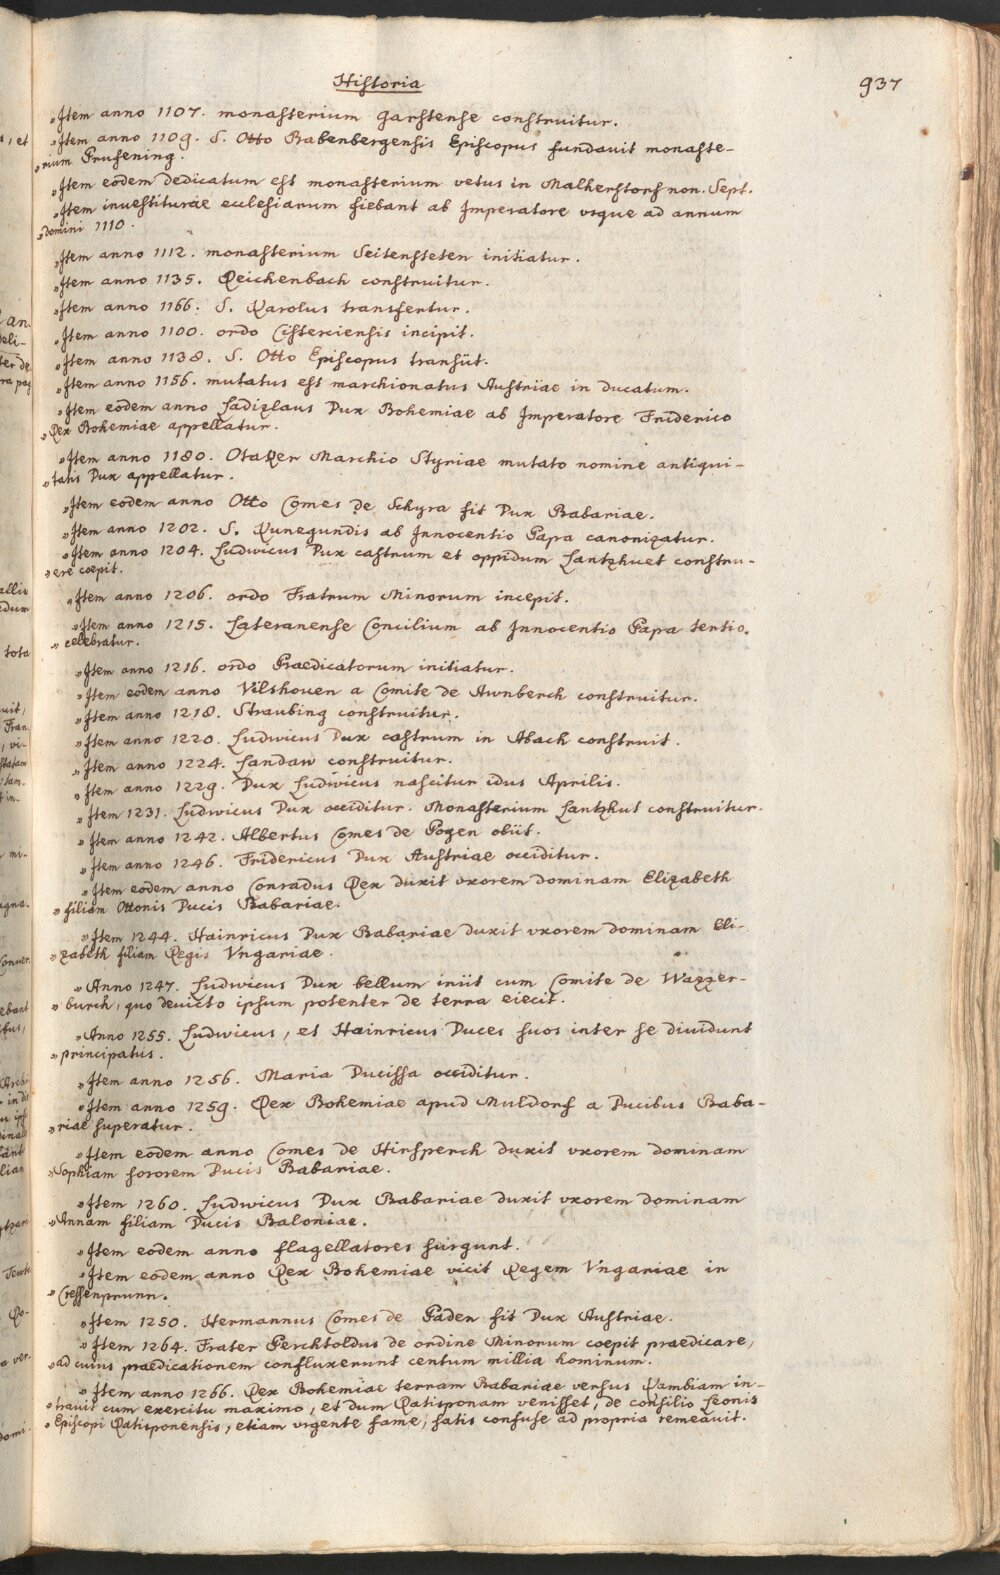 Historia
937
"Item anno 1107. monasterium Garstense construitur.
"Item anno 1109. S. Otto Babenbergensis Episcopus fundavit monaste-
"rium Prufening.
"Item eodem dedicatum est monasterium vetus in Malherstorf non. Sept.
"Item inuestiturae ecclesiarum fiebant ab Imperatore vsque ad annum
"domini 1110.
"Item anno 1112. monasterium Seitensteten initiatur.
"Item anno 1135. Reichenbach construitur.
"Item anno 1166. S. Karolus transfertur.
"Item anno 1100. ordo Cisterciensis incipit.
"Item anno 1138. S. Otto Episcopus transiit.
"Item anno 1156. mutatus est marchionatus Austriae in ducatum.
"Item eodem anno Ladizlaus Dux Bohemiae ab Imperatore Friderico
"Rex Bohemiae appellatur.
"Item anno 1180. Otaker Marchio Styriae mutato nomine antiqui-
"tatis Dux appellatur.
"Item eodem anno Otto Comes de Schyra fit Dux Babariae.
"Item anno 1202. S. Kunegundis ab Innocentio Papa canonizatur.
"Item anno 1204. Ludwicus Dux castrum et oppidum Lantzhuet constru-
"ere coepit.
"Item anno 1206. ordo Fratrum Minorum incepit.
"Item anno 1215. Lateranense Concilium ab Innocentio Papa tertio.
"celebratur.
"Item anno 1216. ordo Praedicatorum initiatur.
"Item eodem anno Vilshouen a Comite de Awnberch construitur.
"Item anno 1218. Straubing construitur.
"Item anno 1220. Ludwicus Dux castrum in Abach construit.
"Item anno 1224. Landaw construitur.
"Item anno 1229. Dux Ludwicus nascitur idus Aprilis.
"Item 1231. Ludwicus Dux occiditur. Monasterium Lantzhut construitur.
"Item anno 1242. Albertus Comes de Pogen obiit.
"Item anno 1246. Fridericus Dux Austriae occiditur.
"Item eodem anno Conradus Rex duxit vxorem dominam Elizabeth
"filiam Ottonis Ducis Babariae.
"Item 1244. Hainricus Dux Babariae duxit vxorem dominam Eli-
"zabeth filiam Regis Vngariae.
"Anno 1247. Ludwicus Dux bellum iniit cum Comite de Wazzer-
"burch, quo deuicto ipsum potenter de terra eiecit.
"Anno 1255. Ludwicus, et Hainricus Duces suos inter se diuidunt
"principatus.
"Item anno 1256. Maria Ducissa occiditur.
"Item anno 1259. Rex Bohemiae apud Muldorf a Ducibus Baba-
"riae superatur.
"Item eodem anno Comes de Hirsperch duxit vxorem dominam
"Sophiam sororem Ducis Babariae.
"Item 1260. Ludwicus Dux Babariae duxit vxorem dominam
"Annam filiam Ducis Baloniae.
"Item eodem anno flagellatores surgunt.
"Item eodem anno Rex Bohemiae vicit Regem Vngariae in
"Cressenprunn.
"Item 1250. Hermannus Comes de Paden fit Dux Austriae.
"Item 1264. Frater Perchtoldus de ordine Minorum coepit praedicare,
"ad cuius praedicationem confluxerunt centum millia hominum.
"Item anno 1266. Rex Bohemiae terram Babariae versus Kambiam in-
"trauit cum exercitu maximo, et dum Ratisponam venisset, de consilio Leonis
"Episcopi Ratisponensis, etiam vrgente fame, satis confuse ad propria remeauit.